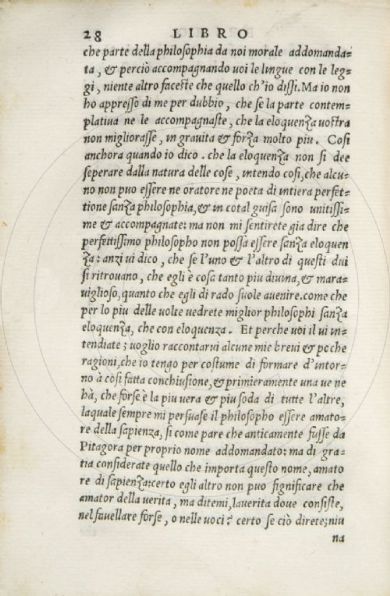 28 LIBRO
che parte della philosophia da noi morale addomanda-
ta, & perciò accompagnando uoi le lingue con le leg-
gi, niente altro faceste che quello ch'io dissi. Ma io non
ho appresso di me per dubbio, che se la parte contem-
platiua ne le accompagnaste, che la eloquenza uostra
non migliorasse, in grauita & forza molto piu. Cosi
anchora quando io dico. che la eloquenza non si dee
seperare dalla natura delle cose, intendo cosi, che alcu-
no non puo essere ne oratore ne poeta di intiera perfet-
tione sanza philosophia, & in cotal guisa sono unitissi-
me & accompagnate: ma non mi sentirete gia dire che
perfettissimo philosopho non possa essere sanza eloquen
za: anzi ui dico, che se l'uno & l'altro di questi dui
si ritrouano, che egli è cosa tanto piu diuina, & mara-
uiglioso, quanto che egli di rado suole auenire. come che
per lo piu delle uolte uedrete miglior philosophi sanza
eloquenza, che con eloquenza. Et perche uoi il ui in-
tendiate; uoglio raccontarui alcune mie breui & poche
ragioni, che io tengo per costume di formare d'intor-
no à cosi fatta conchiusione, & primieramente una ue ne
hà, che forse è la piu uera & piu soda di tutte l'altre,
laquale sempre mi persuase il philosopho essere amato-
re della sapienza, si come pare che anticamente fusse da
Pitagora per proprio nome addomandato: ma di gra-
tia considerate quello che importa questo nome, amato
re di sapienza: certo egli altro non puo significare che
amator della uerita, ma ditemi, la uerita doue consiste,
nel fauellare forse, o nelle uoci? certo se ciò direte; niu
na